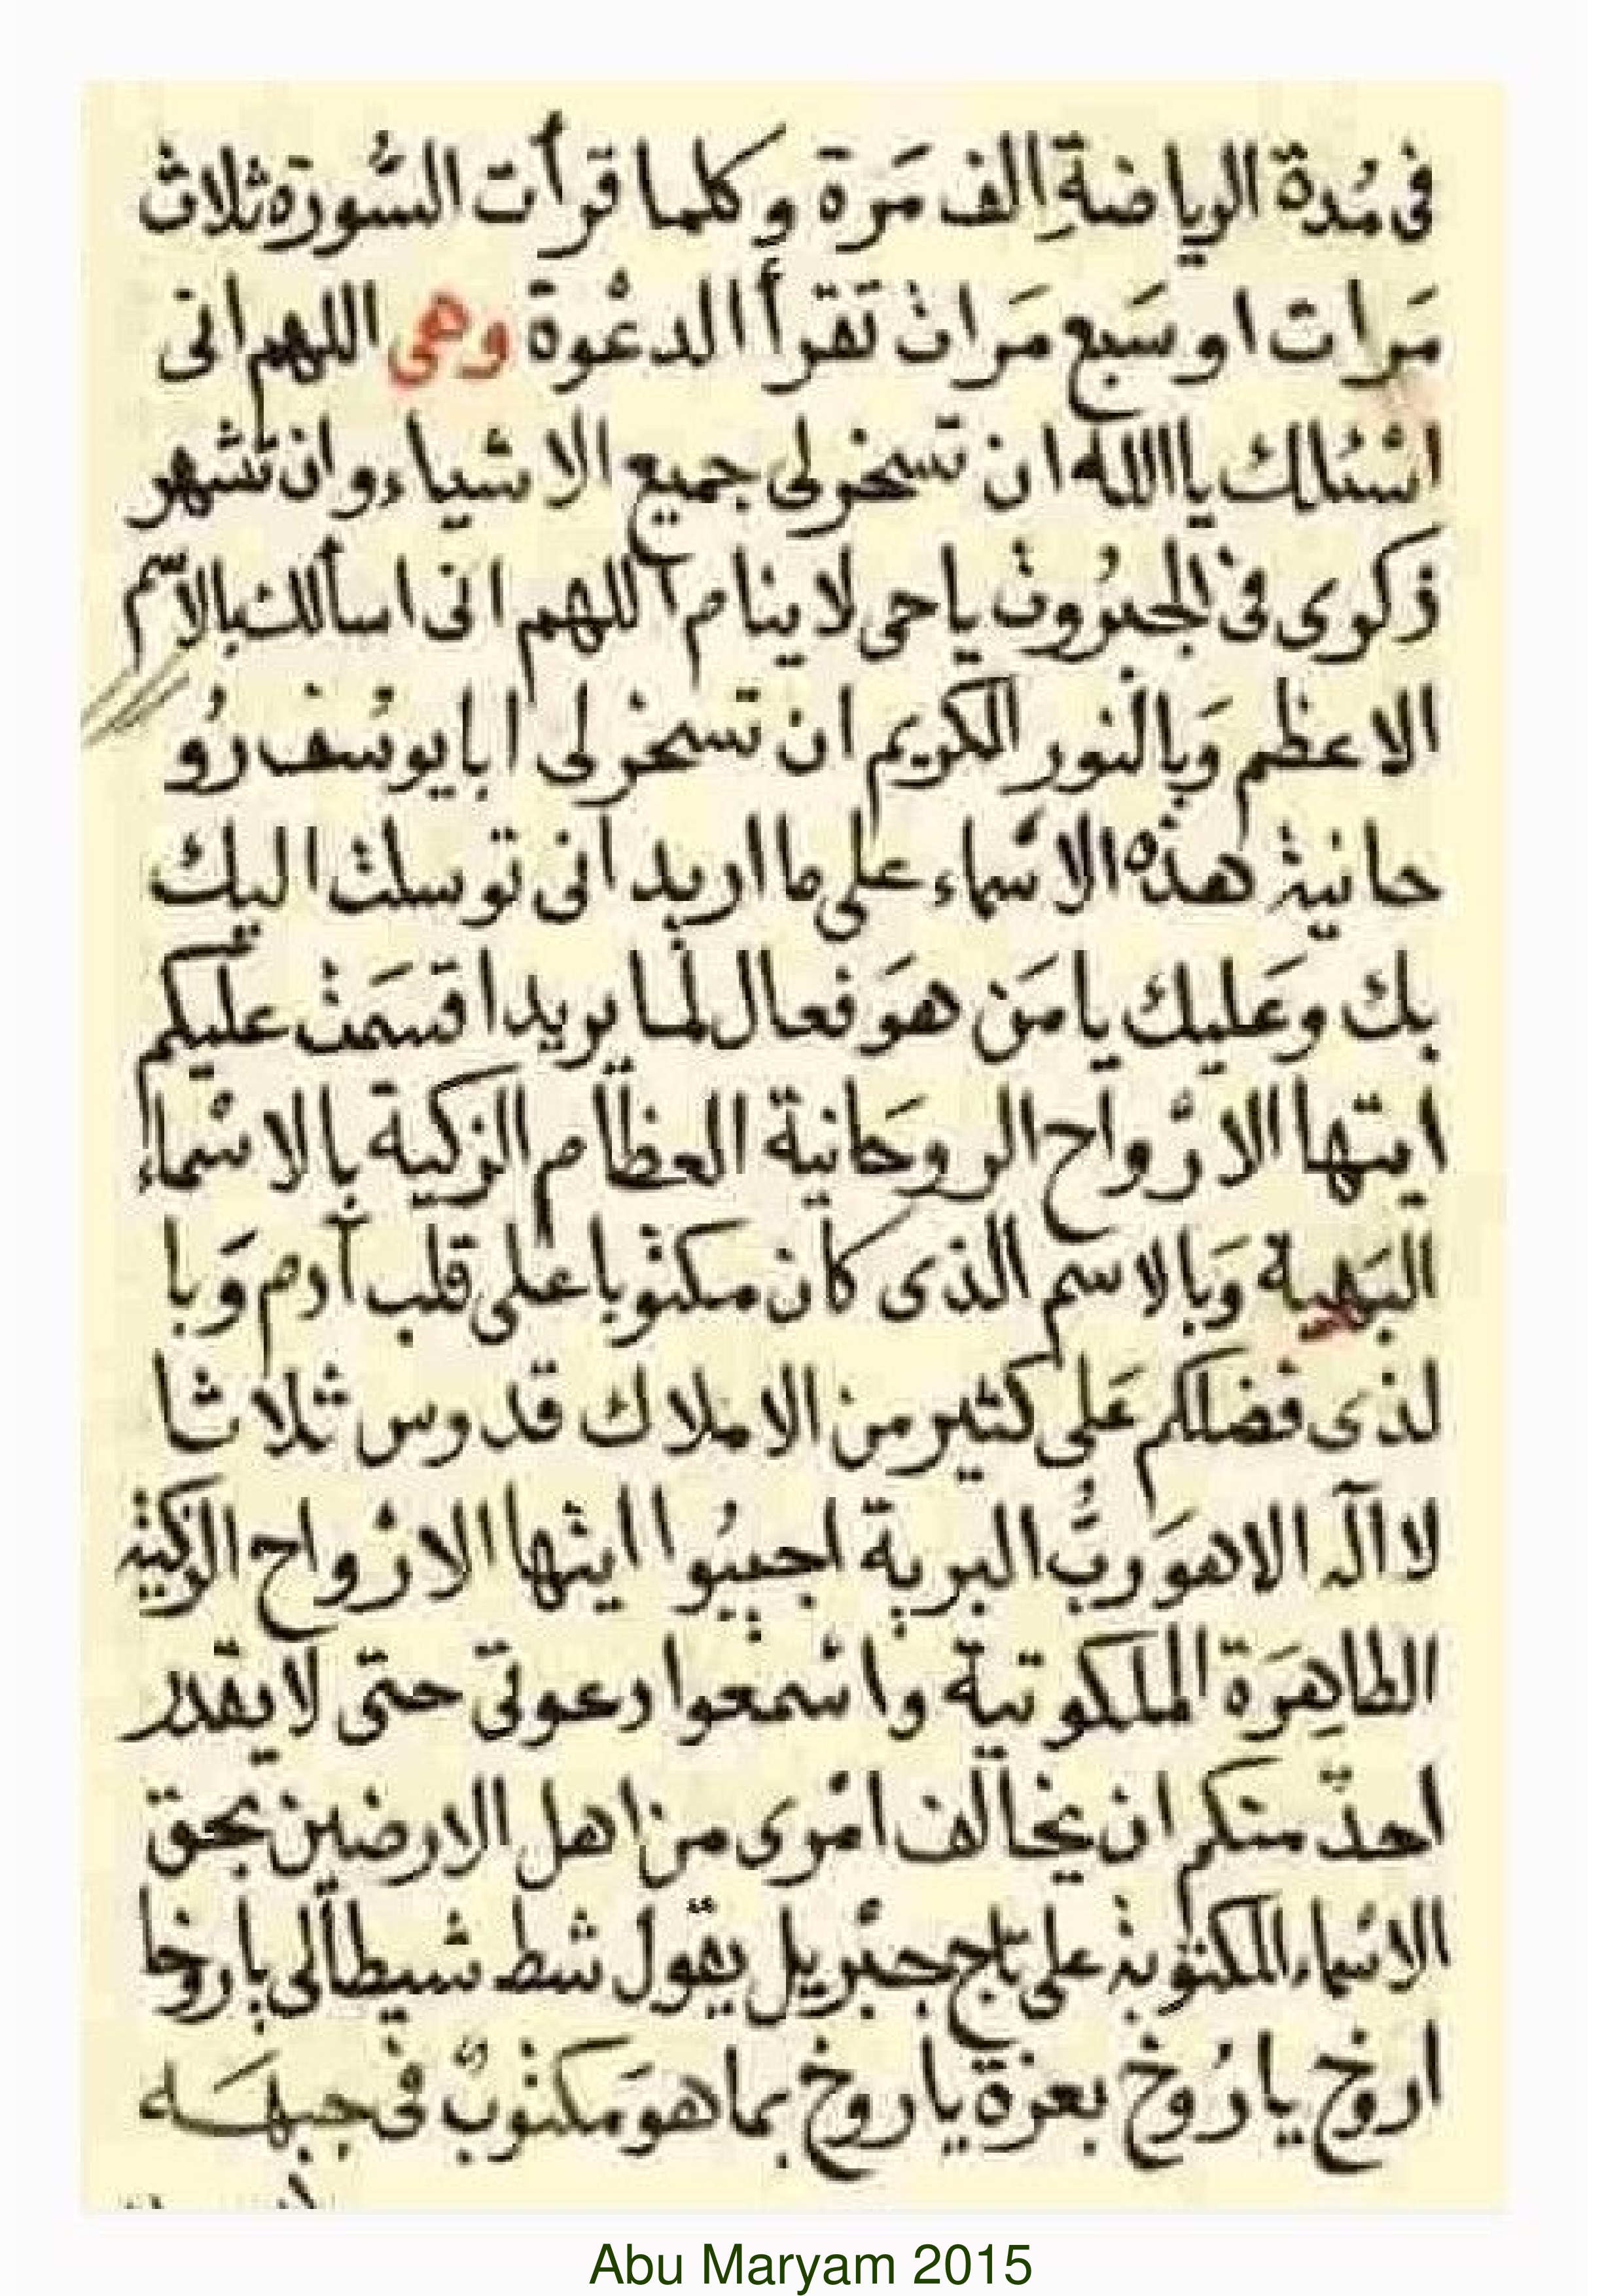 فى مُدة الرياضةِ الف مَرة وكلما قرأت السُّورة ثلاث
مَرات او سَبع مَرات تقرأ الدعْوة وهى اللهم انى
اسئلك ياالله ان تسخرلى جميع الاشياء وان تشهر
ذكرى فى الجبرُوت ياحى لاينام اللهم انى اسألك بالاسم
الاعظم وَبالنور الكريم ان تسخرلى ابايوسُف رُو
حانية هذه الاسماء على ما اريد انى توسلت اليك
بك وعَليك يامَن هوَ فعال لما يريد اقسَمت عليكم
ايتها الارْواح الروحَانية العظام الزكية بالاسْماء
البَهية وَبالاسم الذى كان مكتوبا على قلب آدم وَبا
لذى فضلكم عَلى كثير من الاملاك قدوس ثلاثا
لااله الاهوَ رَبُّ البرية اجيبُوا ايتها الارْواح الزكية
الطاهِرَة الملكوتية واسْمعوا دعوتى حتى لايقدر
احدٌ منكم ان يخالف امْرى من اهل الارضين بحق
الاسْماء المكتوبة على تاج جبْريل يقول شط شيطالى ياروخا
اروخ يا رُوخ بعزة ياروخ بماهوَ مكتوبٌ فى جبهَه
Abu Maryam 2015